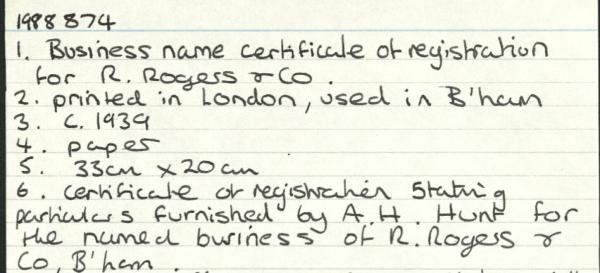 1988 874
1. Business name certificate of registration
for R. Rogers & Co.
2. printed in London, used in B'ham
3. C. 1939
4. paper
5. 33cm x 20cm
6. certificate of registration stating
particulars furnished by A.H. Hunt for
the named business of R. Rogers &
Co, B'ham.